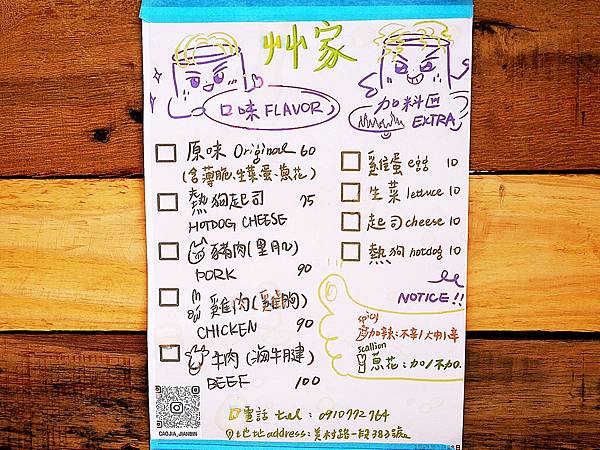 艸家
口味 FLAVOR
加料區
EXTRA
原味 Original 60
(含薄脆、生菜、蛋、蔥花)
熱狗起司 75
HOTDOG CHEESE
豬肉(里肌)
PORK 90
雞肉(雞胸)
CHICKEN 90
牛肉(滷牛腱)
BEEF 100
雞蛋 egg 10
生菜 lettuce 10
起司 cheese 10
熱狗 hotdog 10
NOTICE!!
spicy
加辣:不辛/大小辛
scallion
蔥花:加/不加
CAOJIA_JIANBIN
電話 tel : 0910772764
地址 address: 美村路一段383號